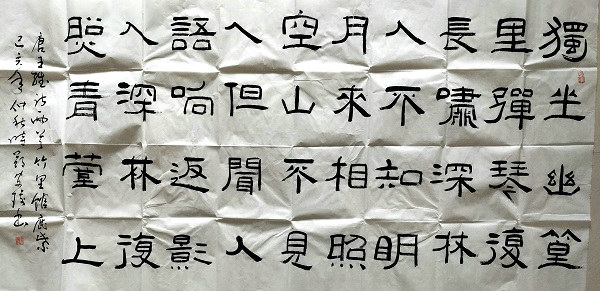 獨坐幽篁
里彈琴復
長嘯深林
人不知明
月來相照
空山不見
人但聞人
語响返影
入深林復
照青薹上
唐王維诗兩首竹里館鹿柴
己亥年仲秋時